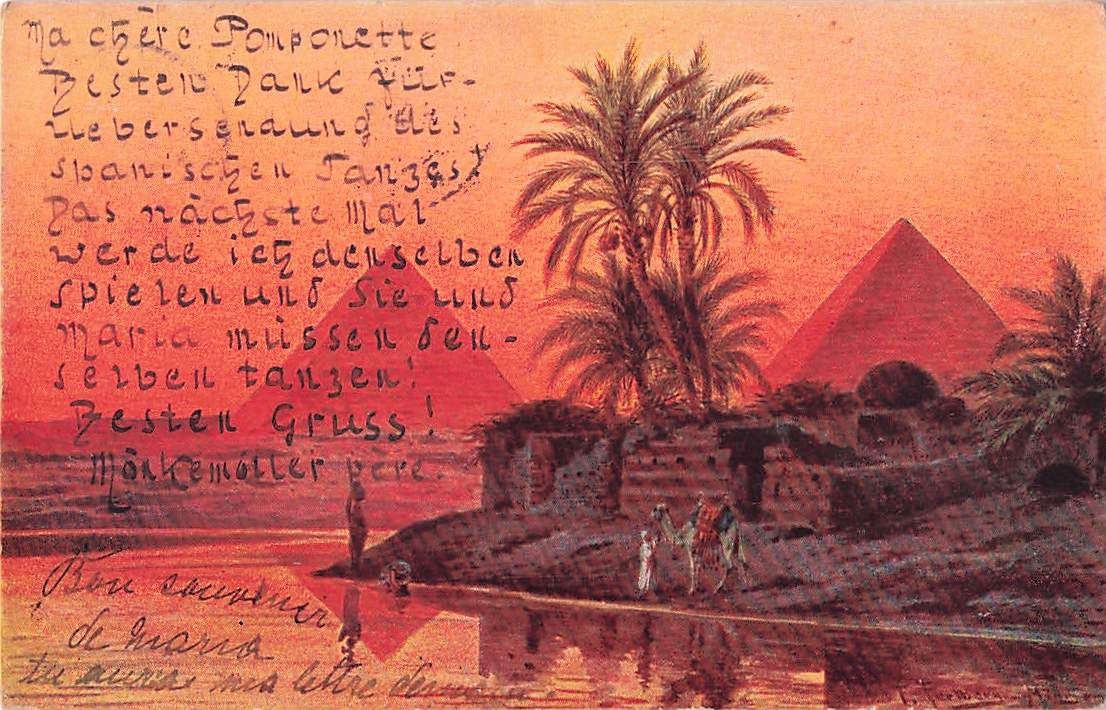 Ma chère Pomponette
Besten Dank für
Uebersendung des
spanischen Tanzes!
Das nächste Mal
werde ich denselben
spielen und Sie und
Maria müssen den-
selben tanzen!
Besten Gruss!
Mönkemöller père.
Bon souvenir
de Maria
tu auras ma lettre demain.